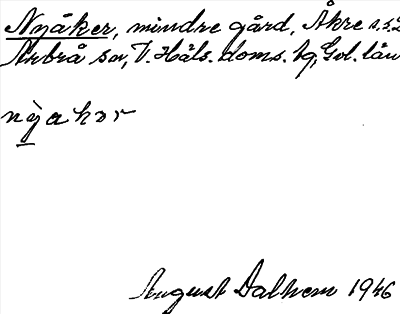 Nyåker, mindre gård, Åkre s.s.
Arbrå sn, V. Häls. doms. hg, Gvl. län
nỳakər
August Dalhem 1946